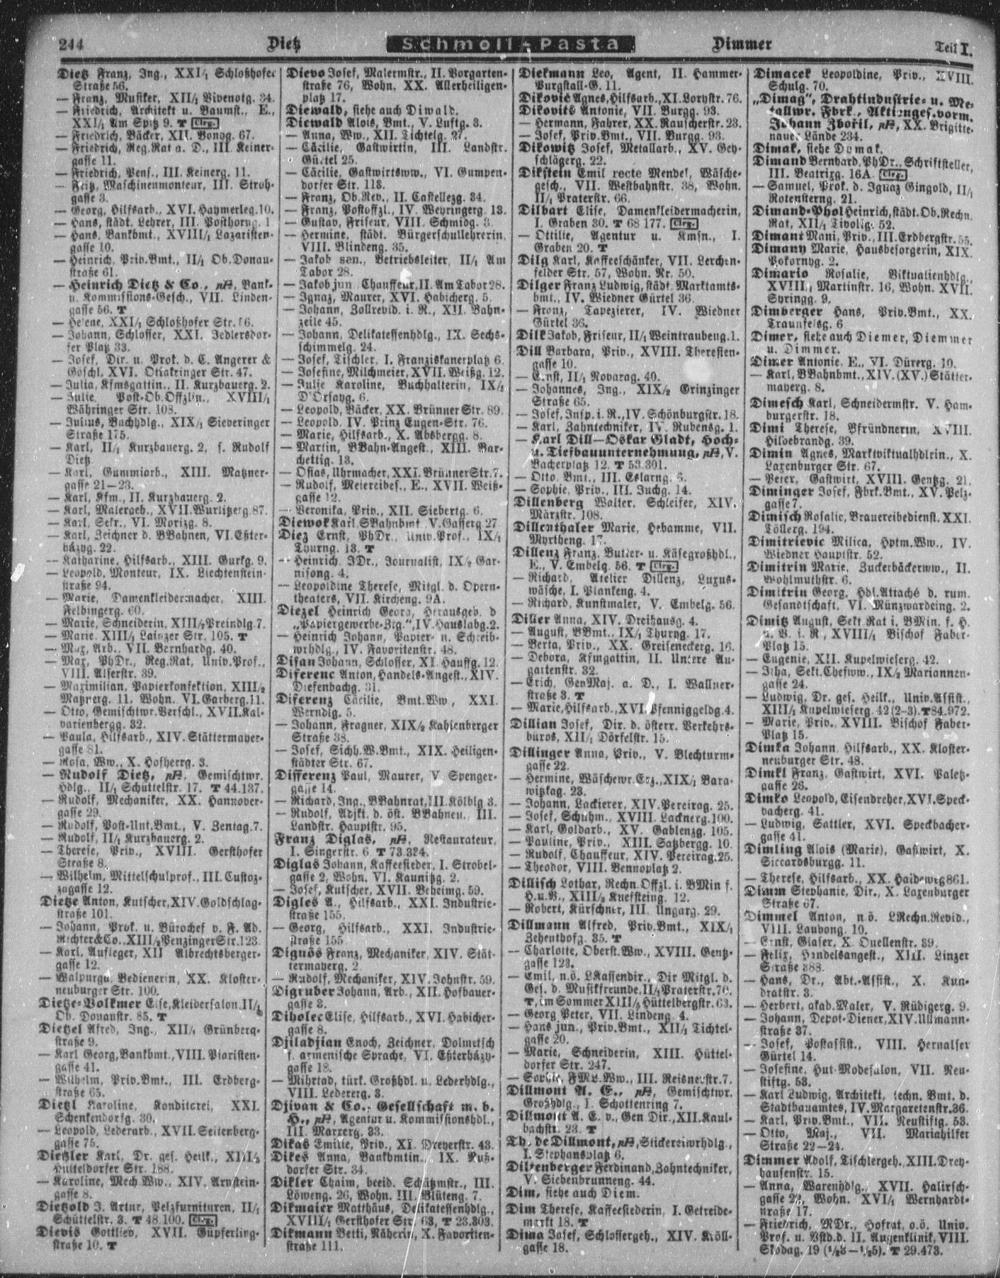 244 Dietz Schmoll-Pasta Dimmer Teil I.
Dietz Franz, Ing., XXI/1 Schloßhofer
Straße 56.
— Franz, Musiker, XII/1 Vivenotg. 34.
— Friedrich, Architekt u. Baumst., E.,
XXI/1 Am Spitz 9. T Clrg.
— Friedrich, Bäcker, XIV. Goldg. 67.
— Friedrich, Reg.Rat a. D., III. Keiner-
gasse 11.
— Friedrich, Pens., III. Keinerg. 11.
— Fritz, Maschinenmonteur, III. Stroh-
gasse 3.
— Georg, Hilfsarb., XVI. Haymerleg. 10.
— Hans, städt. Lehrer, III. Posthorng. 1
— Hans, Bankbmt., XVIII/1 Lazaristen-
gasse 10.
— Heinrich, Priv.Bmt., II/1 Ob. Donau-
straße 61.
— Heinrich Dietz & Co., Bank-
u. Kommissions-Gesch., VII. Linden-
gasse 56. T
— Helene, XXI/1 Schloßhofer Str. 56.
— Johann, Schlosser, XXI. Jedlersdor-
fer Platz 33.
— Josef, Dir. u. Prok. d. C. Angerer &
Göschl, XVI. Ottakringer Str. 47.
— Julia, Kfmsgattin, II. Kurzbauerg. 2.
— Julie, Post-Ob.Offzlin., XVIII/1
Währinger Str. 108.
— Julius, Buchhdlg., XIX/1 Sieveringer
Straße 175.
— Karl, II/1 Kurzbauerg. 2, s. Rudolf
Dietz
— Karl, Gummiarb., XIII. Matzner-
gasse 21—23.
— Karl, Kfm., II. Kurzbauerg. 2.
— Karl, Malergeh., XVII. Wurlitzerg. 87.
— Karl, Sekr., VI. Morizg. 8.
— Karl, Zeichner d. BBahnen, VI. Eßter-
házyg. 22.
— Katharine, Hilfsarb., XIII. Gurkg. 9.
— Leopold, Monteur, IX. Liechtenstein-
straße 94.
— Marie, Damenkleidermacher, XIII.
Feldingerg. 60.
— Marie, Schneiderin, XIII/3 Preindlg. 7.
— Marie, XIII/1 Lainzer Str. 105. T
— Max, Arb., VII. Bernhardg. 40.
— Max, PhDr., Reg.Rat, Univ.Prof.,
VIII. Alserstr. 39.
— Maximilian, Papierkonfektion, XIII/2
Matznerg. 11. Wohn. VI. Garberg. 11.
— Otto, Gemischtwr.Verschl., XVII. Kal-
varienbergg. 32.
— Paula, Hilfsarb., XIV. Stättermayer-
gasse 81.
— Rosa, Ww., X. Hofherrg. 3.
— Rudolf Dietz, Gemischtwr.
Hdlg., II/1 Schüttelstr. 17. T 44.137.
— Rudolf, Mechaniker, XX. Hannover-
gasse 29.
— Rudolf, Post-Unt.Bmt., V. Zentag. 7.
— Rudolf, II/1 Kurzbauerg. 2.
— Therese, Priv., XVIII. Gersthofer
Straße 8.
— Wilhelm, Mittelschulprof., III. Custoz-
zagasse 12.
Dietze Anton, Kutscher, XIV. Goldschlag-
straße 101.
— Johann, Prok. u. Bürochef v. F. Ad.
Richter & Co., XIII/1 Penzinger Str. 123.
— Karl, Aufleger, XII Albrechtsberger-
gasse 12.
— Walpurga, Bedienerin, XX. Kloster-
neuburger Str. 100.
Dietze-Volkmer Else, Kleidersalon, II/1
Ob. Donaustr. 85. T
Dietzel Alfred, Ing., XII/1 Grünberg-
straße 9.
— Karl Georg, Bankbmt., VIII. Piaristen-
gasse 41.
— Wilhelm, Priv.Bmt., III. Erdberg-
straße 65.
Dietzl Karoline, Konditorei, XXI.
Schenkendorfg. 30.
— Leopold, Lederarb., XVII. Seitenberg-
gasse 75.
Dietzler Karl, Dr. ges. Heilk., XIII/1
Hütteldorfer Str. 188.
— Karoline, Mech.Ww., XIV. Arnstein-
gasse 8.
Dietzold J. Artur, Pelzfurnituren, II/1
Schüttelstr. 3. T 48.100. Clrg.
Dievis Gottlieb, XVII. Güpferling-
straße 10. T
Dievo Josef, Malermstr., II. Vorgarten-
straße 76, Wohn. XX. Allerheiligen-
platz 17.
Diewald, siehe auch Diwald.
Diewald Alois, Bmt., V. Luftg. 3.
— Anna, Ww., XII. Tichtelg. 27.
— Cäcilie, Gastwirtin, III. Landstr.
Gürtel 25.
— Cäcilie, Gastwirtsww., VI. Gumpen-
dorfer Str. 118.
— Franz, Ob.Rev., II. Castellezg. 34.
— Franz, Postoffzl., IV. Weyringerg. 13.
— Gustav, Friseur, VIII. Schmidg. 3.
— Hermine, städt. Bürgerschullehrerin,
VIII. Blindeng. 35.
— Jakob sen., Betriebsleiter, II/1 Am
Tabor 28.
— Jakob jun. Chauffeur, II. Am Tabor 28.
— Ignaz, Maurer, XVI. Habicherg. 5.
— Johann, Zollrevid. i. R., XII. Bahn-
zeile 45.
— Johann, Delikatessenhdlg., IX. Sechs-
schimmelg. 24.
— Josef, Tischler, I. Franziskanerplatz 6.
— Josefine, Milchmeier, XVII. Weißg. 12.
— Julie Karoline, Buchhalterin, IX/2
D'Orsayg. 6.
— Leopold, Bäcker, XX. Brünner Str. 89.
— Leopold, IV. Prinz Eugen-Str. 76.
— Marie, Hilfsarb., X. Absbergg. 8.
— Martin, BBahn-Angest., XIII. Gar-
chettig. 13.
— Osias, Uhrmacher, XXI. Brünner Str. 7.
— Rudolf, Meiereibes., E., XVII. Weiß-
gasse 12.
— Veronika, Priv., XII. Siebertg. 6.
Diewok Karl, SBahnbmt. V. Gasserg. 27
Diez Ernst, PhDr., Univ.Prof., IX/1
Thurng. 13. T
— Heinrich, JDr., Journalist, IX/2 Gar-
nisong. 4.
— Leopoldine Therese, Mitgl. d. Opern-
theaters, VII. Kircheng. 9A.
Diezel Heinrich Georg, Herausgeb. d
„Papiergewerbe-Ztg.“, IV. Hauslabg. 2.
— Heinrich Johann, Papier- u. Schreib-
wrhdlg., IV. Favoritenstr. 48.
Difan Johann, Schlosser, XI. Hauffg. 12.
Diferenc Anton, Handels-Angest., XIV.
Diefenbachg. 31.
Diferenz Cäcilie, Bmt.Ww., XXI.
Werndlg. 5.
— Johann, Fragner, XIX/2 Kahlenberger
Straße 38.
— Josef, Sichh.W.Bmt., XIX. Heiligen-
städter Str. 67.
Differenz Paul, Maurer, V. Spenger-
gasse 14.
— Richard, Ing., BBahnrat, III. Kölblg. 3.
— Rudolf, Adjkt. d. öst. BBahnen, III.
Landstr. Hauptstr. 95.
Franz Diglas, Restaurateur,
I. Singerstr. 6 T 73.324.
Diglas Johann, Kaffeesieder, I. Strobel-
gasse 2, Wohn. VI. Kaunitzg. 2.
— Josef, Kutscher, XVII. Beheimg. 59.
Digles A., Hilfsarb., XXI. Industrie-
straße 155.
— Georg, Hilfsarb., XXI. Industrie-
straße 155
Dignös Franz, Mechaniker, XIV. Stät-
termayerg. 2.
— Rudolf, Mechaniker, XIV. Johnstr. 59.
Digruber Johann, Arb., XII. Hofbauer-
gasse 3.
Diholec Else, Hilfsarb., XVI. Habicher-
gasse 8.
Djiladjian Enoch, Zeichner, Dolmetsch
f. armenische Sprache, VI. Eßterházy-
gasse 18.
— Mihrtad, türk. Großhdl. u. Lederhdlg.,
VIII. Ledererg. 3.
Djivan & Co., Gesellschaft m. b.
H., Agentur u. Kommissionshdl.,
III. Marxerg. 33.
Dikas Emilie, Priv., XI. Dreherstr. 43.
Dikes Anna, Bankbmtin., IX. Puß-
dorfer Str. 34.
Dikler Chaim, beeid. Schätzmstr., III.
Löweng. 26, Wohn. III. Blüteng. 7.
Dikmaier Matthäus, Delikatessenhdlg.,
XVIII/1 Gersthofer Str. 63, T 23.303.
Dikmann Betti, Näherin, X. Favoriten-
straße 111.
Diekmann Leo, Agent, II. Hammer-
Purgstall-G. 11.
Dikovic Agnes, Hilfsarb., XI. Lorystr. 76.
Dikovits Antonie, VII. Burgg. 93.
— Hermann, Fahrer, XX. Rauscherstr. 23.
— Josef, Priv.Bmt., VII. Burgg. 93.
Dikowitz Josef, Metallarb., XV. Gey-
schlägerg. 22.
Dikstein Emil recte Mendel, Wäsche-
gesch., VII. Westbahnstr. 38, Wohn.
II/1 Praterstr. 66.
Dilbart Elise, Damenkleidermacherin,
I. Graben 30. T 68 177. Clrg.
— Ottilie, Agentur u. Kmsn., I.
Graben 20. T
Dilg Karl, Kaffeeschänker, VII. Lerchen-
felder Str. 57, Wohn. Nr. 50.
Dilger Franz Ludwig, städt. Marktamts-
bmt., IV. Wiedner Gürtel 36.
— Franz, Tapezierer, IV. Wiedner
Gürtel 36.
Dilk Jakob, Friseur, II/2 Weintraubeng. 1.
Dill Barbara, Priv., XVIII. Theresien-
gasse 10.
— Ernst, II/1 Novarag. 40.
— Johannes, Ing., XIX/2 Grinzinger
Straße 65.
— Josef, Insp. i. R., IV. Schönburgstr. 18.
— Karl, Zahntechniker, IV. Rubensg. 1.
— Karl Dill—Oskar Gladt, Hoch-
u. Tiefbauunternehmung, V.
Bacherplatz 12. T 53.301.
— Otto, Bmt., III. Eslarng. 6.
— Sophie, Priv., III. Juchg. 14.
Dillenberg Walter, Schleifer, XIV.
Märzstr. 108.
Dillenthaler Marie, Hebamme, VII.
Myrtheng. 17.
Dillenz Franz, Butter- u. Käsegroßhdl.,
E., V. Embelg. 56. T Clrg.
— Richard, Atelier Dillenz, Luxus-
wäsche, I. Plankeng. 4.
— Richard, Kunstmaler, V. Embelg. 56.
Diller Anna, XIV. Dreihausg. 4.
— August, BBmt., IX/1 Thurng. 17.
— Berta, Priv., XX. Greiseneckerg. 16.
— Debora, Kfmgattin, II. Untere Au-
gartenstr. 32.
— Erich, GenMaj. a. D., I. Wallner-
straße 3. T
— Marie, Hilfsarb., XVI. Pfenniggeldg. 4.
Dillian Josef, Dir. d. österr. Verkehrs-
büros, XII/1 Dörfelstr. 15.
Dillinger Anna, Priv., V. Blechturm-
gasse 22.
— Hermine, Wäschewr.Erz., XIX/1 Bara-
witzkag. 23.
— Johann, Lackierer, XIV. Pereirag. 25.
— Josef, Schuhm., XVIII. Lacknerg. 100.
— Karl, Goldarb., XV. Gablenzg. 105.
— Pauline, Priv., XIII. Satzbergg. 10.
— Rudolf, Chauffeur, XIV. Pereirag. 25.
— Theodor, VIII. Bennoplatz 2.
Dillisch Lothar, Rechn.Offzl. i. BMin f.
H.u.V., XIII/2 Kuefsteing. 12.
— Robert, Kürschner, III. Ungarg. 29.
Dillmann Alfred, Priv.Bmt., XIX/1
Zehenthofg. 35. T
— Charlotte, Oberst.Ww., XVIII. Gentz-
gasse 123.
— Emil, n.ö. LKassendir., Dir Mitgl. d.
Ges. d. Musikfreunde, II/1 Praterstr. 76.
T, im Sommer XIII/1 Hüttelbergstr. 63.
— Georg Peter, VII. Lindeng. 4.
— Hans jun., Priv.Bmt., XII/1 Tichtel-
gasse 20.
— Marie, Schneiderin, XIII. Hüttel-
dorfer Str. 247.
— Sophie, FML.Ww., III. Reisnerstr. 7.
Dillmont A. E., Gemischtwr.
Großhdlg., I. Schottenring 7.
Dillmont A. E. v., Gen Dir., XII. Kaul-
bachstr. 23. T
Th. de Dillmont, Stickereiwrhdlg.,
I. Stephansplatz 6.
Diltenberger Ferdinand, Zahntechniker,
V. Siebenbrunneng. 44.
Dim, siehe auch Diem.
Dim Therese, Kaffeesiederin, I. Getreide-
markt 18. T
Dima Josef, Schlossergeh., XIV. Kröll-
gasse 18.
Dimacek Leopoldine, Priv., XVIII.
Schulg. 70.
„Dimag“, Drahtindustrie- u. Me-
tallwr. Fbrk., Aktienges. vorm.
Johann Zbořil, XX. Brigitte-
nauer Lände 234.
Dimak, siehe Domak.
Dimand Bernhard, PhDr., Schriftsteller,
III. Beatrixg. 16A. Clrg.
— Samuel, Prok. d. Ignaz Gingold, II/1
Rotensterng. 21.
Dimand-Phol Heinrich, städt. Ob.Rechn.
Rat, XII/1 Tivolig. 52.
Dimant Mani, Priv., III. Erdbergstr. 55.
Dimany Marie, Hausbesorgerin, XIX.
Pokornyg. 2.
Dimario Rosalie, Viktualienhdlg.,
XVIII. Martinstr. 16, Wohn. XVII.
Syringg. 9.
Dimberger Hans, Priv.Bmt., XX.
Traunfelsg. 6
Dimer, siehe auch Diemer, Diemmer
u. Dimmer.
Dimer Antonie, E., VI. Dürerg. 10.
— Karl, BBahnbmt., XIV. (XV.) Stätter-
mayerg. 8.
Dimesch Karl, Schneidermstr., V. Ham-
burgerstr. 18.
Dimi Therese, Pfründnerin, XVIII.
Hildebrandg. 39.
Dimin Agnes, Marktviktualhdlrin., X.
Laxenburger Str. 67.
— Peter, Gastwirt, XVIII. Gentzg. 21.
Diminger Josef, Fbrk.Bmt., XV. Pelz-
gasse 7.
Dimisch Rosalie, Brauereibedienst. XXI.
Töllerg. 194.
Dimitrievic Milica, Hptm.Ww., IV.
Wiedner Hauptstr. 52.
Dimitrin Marie, Zuckerbäckerww., II.
Wohlmuthstr. 6.
Dimitriu Georg, Hdl.Attaché d. rum.
Gesandtschaft, VI. Münzwardeing. 2.
Dimitz August, Sekt.Rat i. BMin. f. H.
u. V. i. R., XVIII/1 Bischof Faber-
Platz 15.
— Eugenie, XII. Kupelwieserg. 42.
— Itha, Sekt.Chefsww., IX/2 Mariannen-
gasse 24.
— Ludwig, Dr. ges. Heilk., Univ.Assist.,
XIII/1 Kupelwieserg. 42 (2—3), T 84.972.
— Marie, Priv., XVIII. Bischof Faber-
Platz 15.
Dimka Johann, Hilfsarb., XX. Kloster-
neuburger Str. 48.
Dimkl Franz, Gastwirt, XVI. Paletz-
gasse 26.
Dimko Leopold, Eisendreher, XVI. Speck-
bacherg. 41.
— Ludwig, Sattler, XVI. Speckbacher-
gasse 41.
Dimling Alois (Marie), Gastwirt, X.
Siccardsburgg. 11.
— Therese, Hilfsarb., XX. Haidwieg 861.
Dimm Stephanie, Dir., X. Laxenburger
Straße 67.
Dimmel Anton, n.ö. LRechn.Revid.,
VIII. Laudong. 10.
— Ernst, Glaser, X. Quellenstr. 39.
— Felix, Handelsangest., XIII. Linzer
Straße 388.
— Hans, Dr., Abt.-Assist., X. Kun-
dratstr. 3.
— Herbert, akad. Maler, V. Rüdigerg. 9.
— Johann, Depot-Diener, XIV. Ullmann-
straße 37.
— Josef, Postassist., VIII. Hernalser
Gürtel 14.
— Josefine, Hut-Modesalon, VII. Neu-
stiftg. 53.
— Karl Ludwig, Architekt, techn. Bmt. d.
Stadtbauamtes, IV. Margaretenstr. 36.
— Karl, Priv.Bmt., VII. Neustiftg. 53.
— Otto, Maj., VII. Mariahilfer
Straße 22—24.
Dimmer Adolf, Tischlergeh., XIII. Drey-
hausenstr. 15.
— Anna, Warenhdlg., XVII. Halirsch-
gasse 22, Wohn. XVI/1 Wernhardt-
straße 17.
— Friedrich, MDr., Hofrat, o.ö. Univ.
Prof. u. Vstd. d. II. Augenklinik, VIII.
Skodag. 19 (½3—½5). T 29.473.